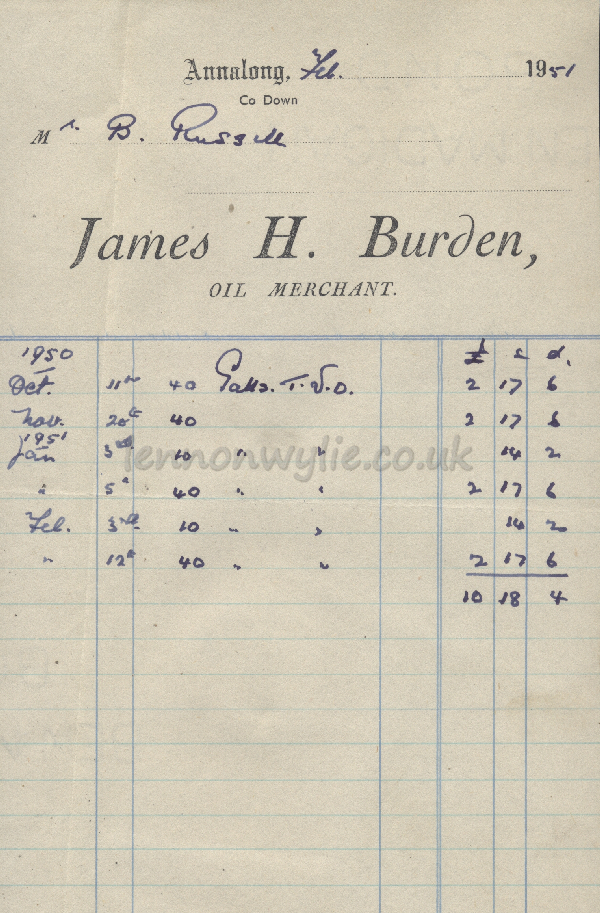 Annalong, Feb. 1951
Co Down
Mr. B. Russell
James H. Burden,
OIL MERCHANT.
1950 £ s d.
Oct. 11th 40 Galls. T.V.O. 2 17 6
Nov. 20th 40 2 17 6
1951
Jan 3rd 10 " " 14 2
" 5th 40 " " 2 17 6
Feb. 3rd 10 " " 14 2
" 12th 40 " " 2 17 6
10 18 4
lennonwylie.co.uk